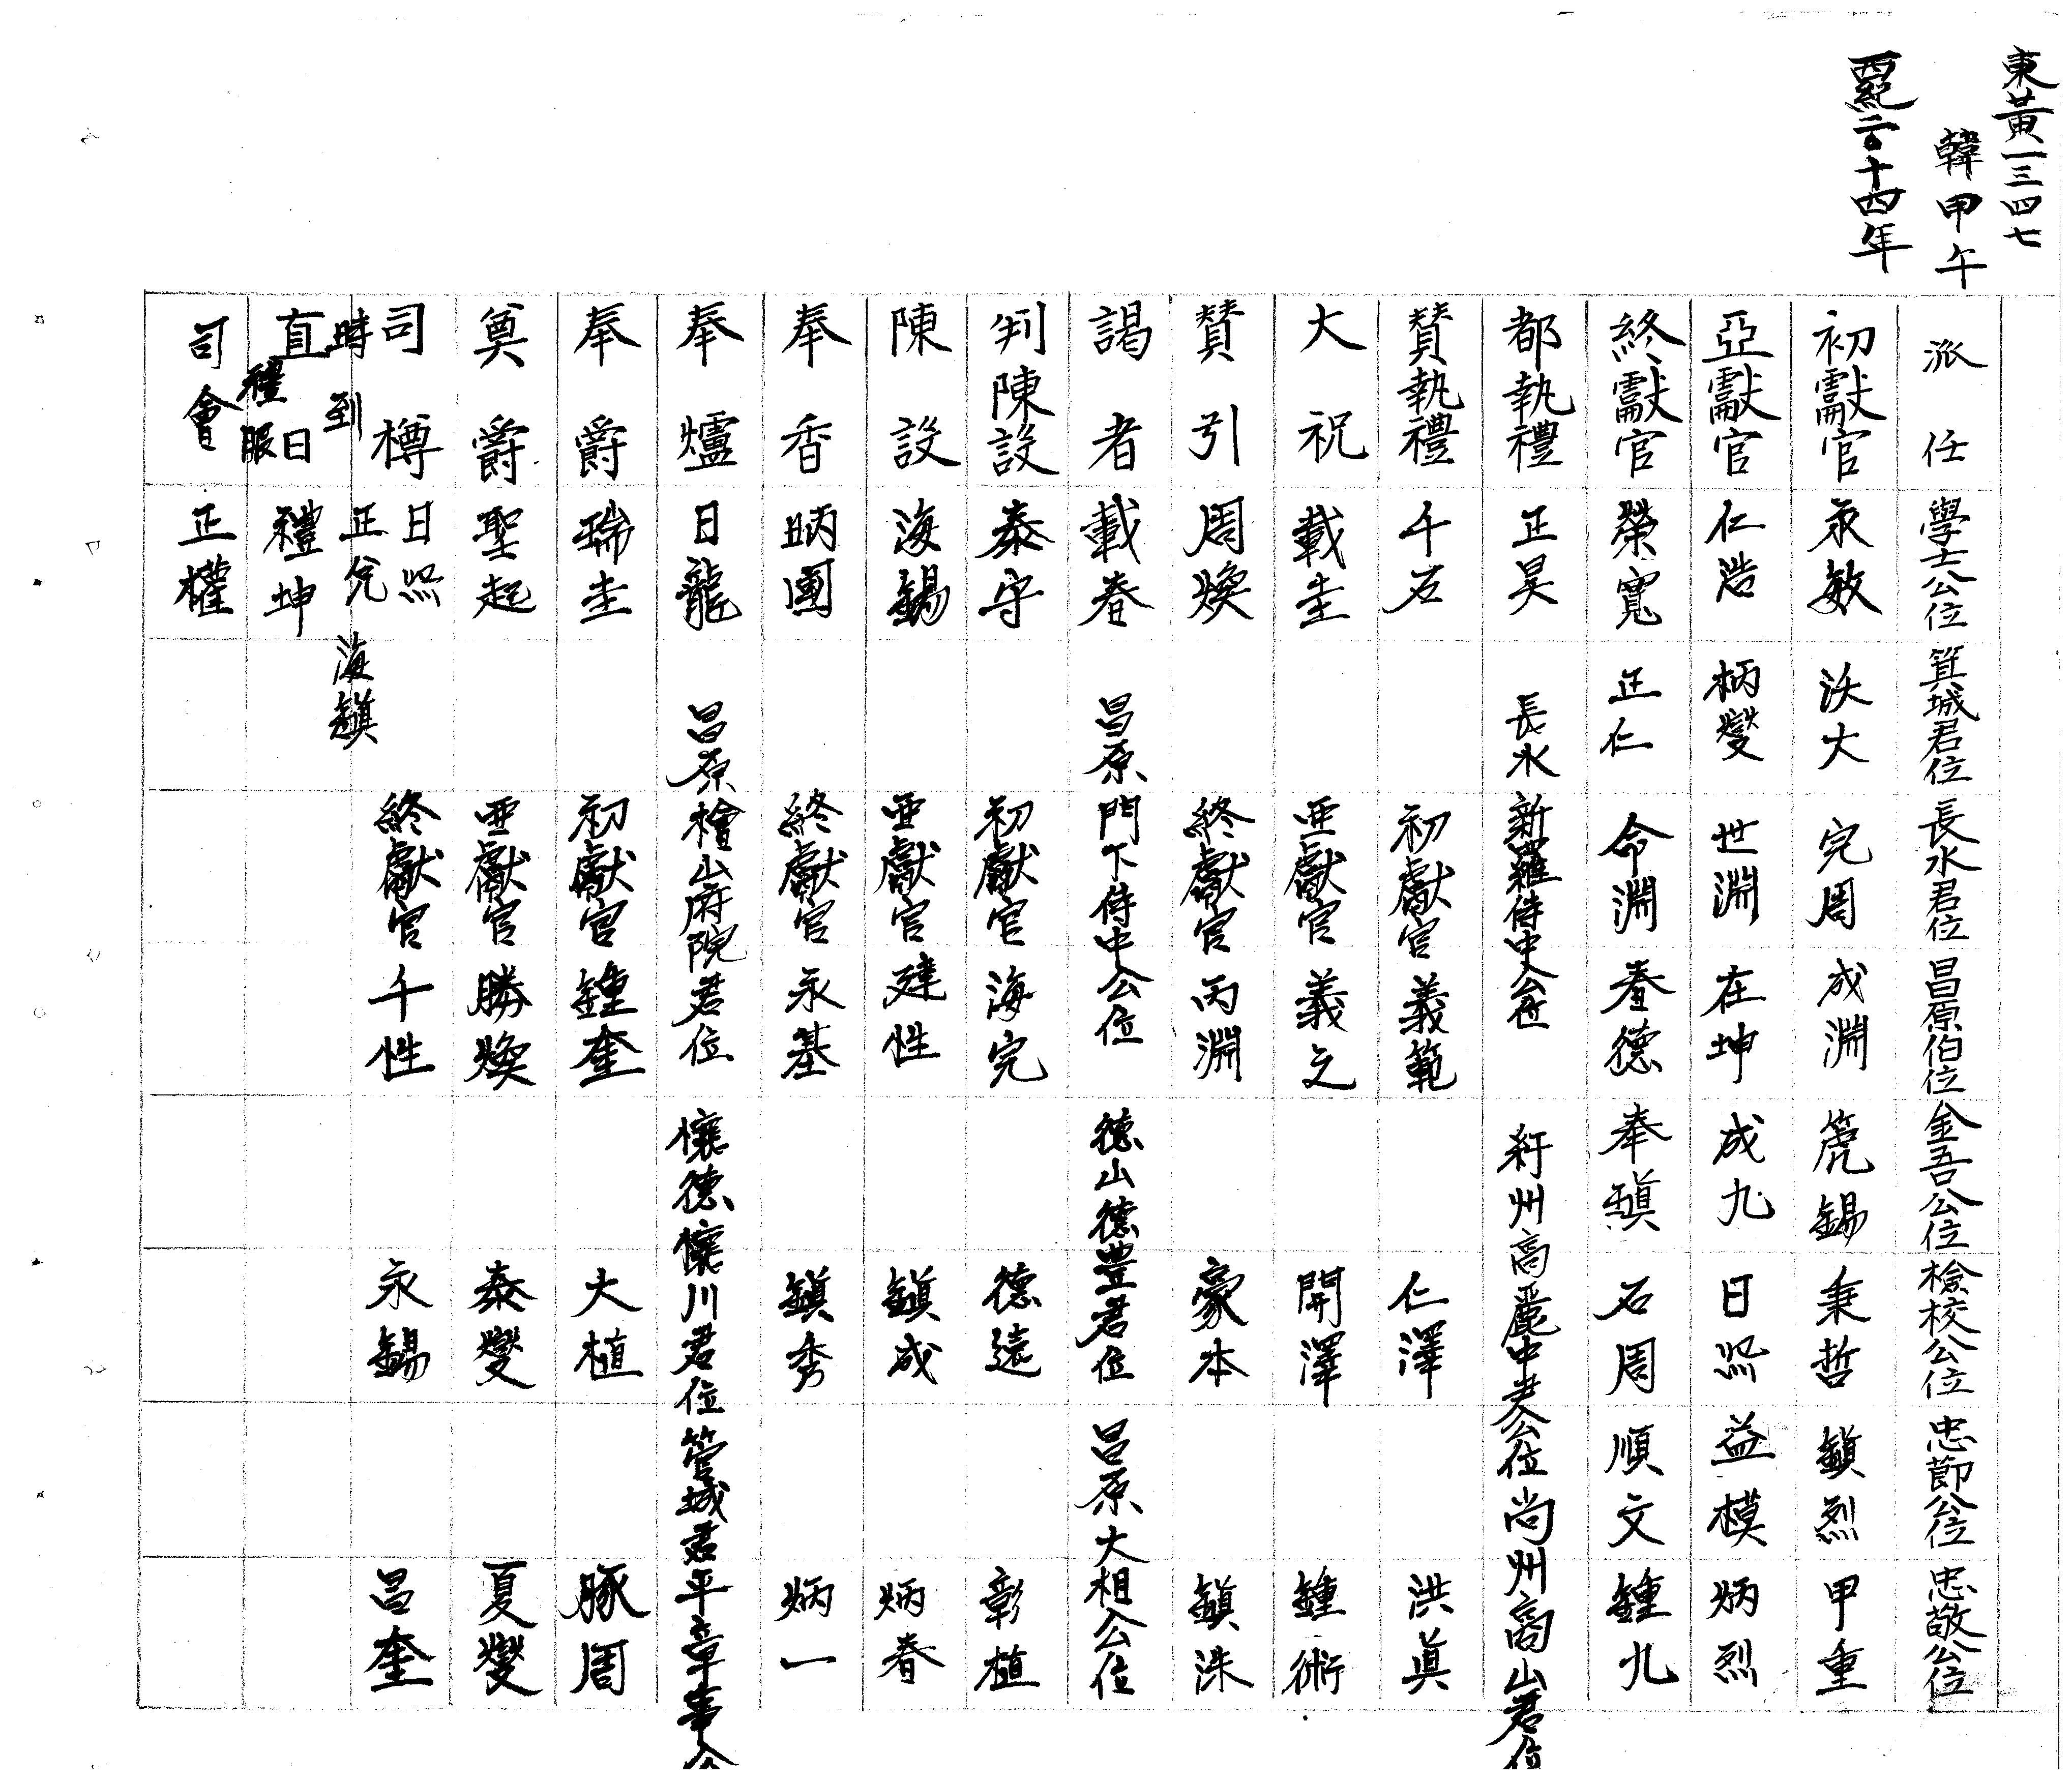 東黃一三四七
韓甲午
西紀二〇十四年
派任 學士公位 箕城君位 長水君位 昌原伯位 金吾公位 檢校公位 忠節公位 忠敬公位
初獻官 永敏 沃大 完周 成淵 箎錫 秉哲 鎭烈 甲重
亞獻官 仁浩 柄燮 世淵 在坤 成九 日熙 益模 炳烈
終獻官 榮寬 正仁 命淵 春德 奉鎭 石周 順文 鍾九
都執禮 正昊 長水 新羅侍中公位 紆州高麗中尹公位 尙州商山君位
贊執禮 千石 初獻官 義範 仁澤 洪眞
大祝 載圭 亜獻官 義之 開澤 鍾術
贊引 周煥 終獻官 丙淵 豪本 鎭洙
謁者 載春 昌原 門下侍中公位 德山德豊君位 昌原大相公位
判陳設 泰守 初獻官 海完 德遠 彰植
陳設 海錫 亜獻官 建性 鎭成 炳春
奉香 昞國 終獻官 永基 鎭秀 炳一
奉爐 日龍 昌原 檜山府院君位 懷德懷川君位 管城君平章事公
奉爵 瑞圭 初獻官 鍾奎 大植 豚周
奠爵 聖起 亜獻官 勝煥 泰燮 夏燮
司樽 日熙 終獻官 千性 永錫 昌奎
時到 正兌 海鎭
直日 禮坤
禮服
司會 正權